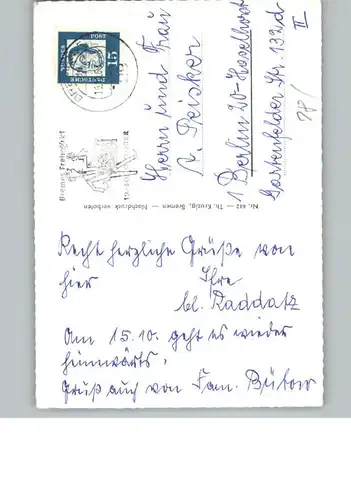 DEUTSCHE
BUNDESPOST
15
Bremer Freimarkt
Herrn und Frau
A. Peisker
1 Berlin 20-Haselhorst
Gartenfelder Str. 132d
II
Nr. 442 — Th. Kruzig, Bremen — Nachdruck verboten
Recht herzliche Grüße von
hier Ihre
Cl. Raddatz
Am 15.10. geht es wieder
heimwärts.
Gruß auch von Fam. Bütow